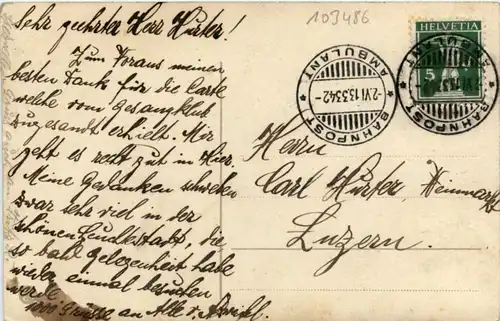 Sehr geehrter Herr Hurter!
Zum Voraus meinen
besten Dank für die Carte
welche vom Gesangklub
zugesandt erhielt. Mir
geht es recht gut in Hier.
Meine Gedanken schweben
zwar sehr viel in der
schönen Leuchtestadt, die
so bald Gelegenheit habe
wieder einmal besuchen
werde
1000 Grüsse an Alle v.
103486
HELVETIA
5
AMBULANT
-2.VI.13.3342-
* BAHNPOST *
AMBULANT
BAHNPOST *
Herrn
Carl Hurter,
Luzern.